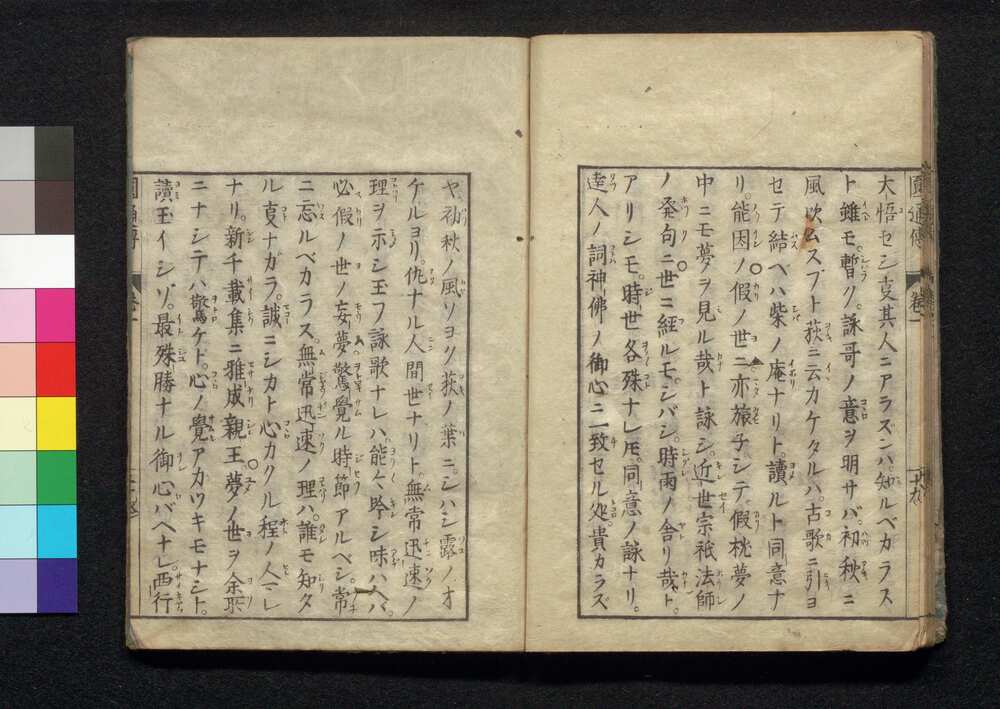 大悟セシ㕝其人ニアラズンハ。知ルベカラス
ト雖モ。暫ク。詠哥ノ意ヲ明サバ。初秋ニ
風吹ムスブト荻ニ云カケタルハ。古歌ニ引ヨ
セテ結ベハ柴ノ庵ナリト。讀ルト同意ナ
リ。能因ノ○假ノ世ニ亦旅子シテ。假枕夢ノ
中ニモ夢ヲ見ル哉ト詠シ。近世宗祇法師
ノ発句ニ○世ニ經ルモ。シバシ。時雨ノ舎リ哉。ト
アリシモ。時世各殊ナレ𪜈。同意ノ詠ナリ。
達人ノ詞神佛ノ御心ニ致セル処貴カラズ
圓通傳 巻一
十九
ヤ。初秋ノ風ソヨク荻ノ葉ニ。シハシ露ノオ
ケルヨリ。仇ナル人間世ナリト。無常迅速ノ
理ヲ示シ玉フ詠歌ナレハ能々吟シ味ハヘバ。
必假ノ世ノ妄夢驚覺ル時節アルベシ。常
ニ忘ルベカラス。無常迅速ノ理ハ。誰モ知タ
ル㕝ナガラ。誠ニシカト心カクル程ノ人ニレ
ナリ。新千載集ニ雅成親王。○夢ノ世ヲ余所
ニナシテハ驚ケド。心ノ覺アカツキモナシト。
讀玉イシゾ。最殊勝ナル御心バヘナレ。西行
圓通傳 巻一